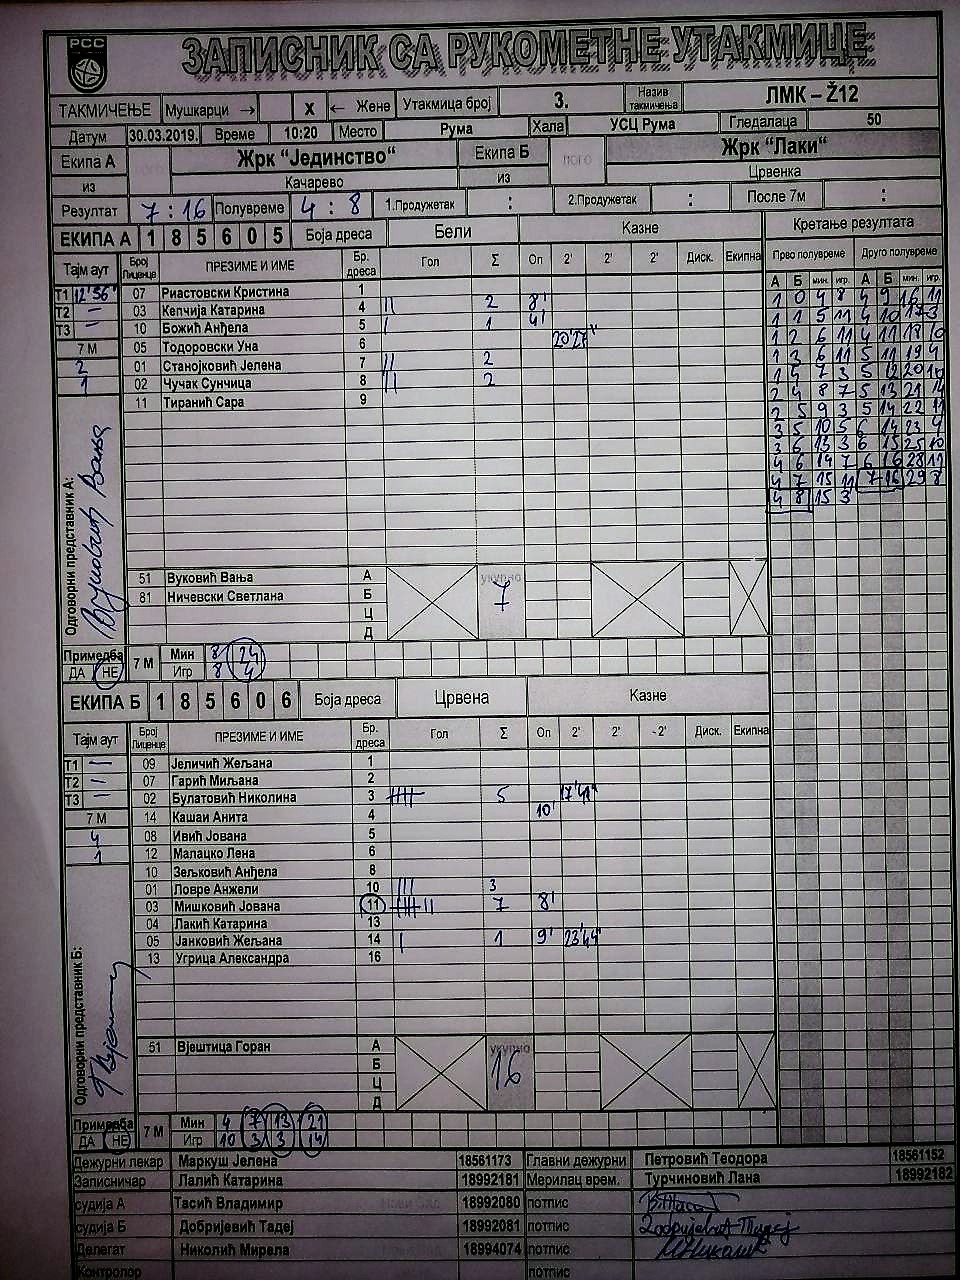 РСС
ЗАПИСНИК СА РУКОМЕТНЕ УТАКМИЦЕ
ТАКМИЧЕЊЕ Мушкарци → X ← Жене Утакмица број 3. Назив такмичења ЛМК – Ž12
Датум 30.03.2019. Време 10:20 Место Рума Хала УСЦ Рума Гледалаца 50
Екипа А Жрк "Јединство" Екипа Б лого Жрк "Лаки"
из Качарево из Црвенка
Резултат 7 : 16 Полувреме 4 : 8 1.Продужетак : 2.Продужетак : После 7м :
ЕКИПА А 1 8 5 6 0 5 Боја дреса Бели Казне Кретање резултата
Тајм аут Број Лиценце ПРЕЗИМЕ И ИМЕ Бр. дреса Гол Σ Оп 2' 2' 2' Диск. Екипна Прво полувреме Друго полувреме
А Б мин. игр. А Б мин. игр.
Т1 12'56" 07 Риастовски Кристина 1
Т2 – 03 Кепчија Катарина 4 || 2 8'
Т3 – 10 Божић Анђела 5 | 1 4'
7 М 05 Тодоровски Уна 6 20'27"
2 01 Станојковић Јелена 7 || 2
1 02 Чучак Сунчица 8 || 2
11 Тиранић Сара 9
1 0 4 8 4 9 16 11
1 1 5 11 4 10 17 3
1 2 6 11 4 11 18 10
1 3 6 11 5 11 19 4
1 4 7 3 5 12 20 10
2 4 8 7 5 13 21 14
2 5 9 3 5 14 22 11
3 5 10 5 6 14 23 4
3 6 13 3 6 15 25 10
4 6 14 7 6 16 28 11
4 7 15 11 7 16 29 8
4 8 15 3
Одговорни представник А: Вуковић Вања
51 Вуковић Вања А укупно 7
81 Ничевски Светлана Б
Ц
Д
Примедба ДА НЕ 7 М Мин 8 24
Игр 8 4
ЕКИПА Б 1 8 5 6 0 6 Боја дреса Црвена Казне
Тајм аут Број Лиценце ПРЕЗИМЕ И ИМЕ Бр. дреса Гол Σ Оп 2' 2' - 2' Диск. Екипна
Т1 – 09 Јеличић Жељана 1
Т2 – 07 Гарић Миљана 2
Т3 – 02 Булатовић Николина 3 |||| 5 17'41"
7 М 14 Кашаи Анита 4 10'
4 08 Ивић Јована 5
1 12 Малацко Лена 6
10 Зељковић Анђела 8
01 Ловре Анжели 10 ||| 3
03 Мишковић Јована 11 |||| || 7 8'
04 Лакић Катарина 13
05 Јанковић Жељана 14 | 1 9' 23'44"
13 Угрица Александра 16
Одговорни представник Б:
51 Вјештица Горан А укупно 16
Б
Ц
Д
Примедба ДА НЕ 7 М Мин 4 7 13 21
Игр 10 3 3 14
Дежурни лекар Маркуш Јелена 18561173 Главни дежурни Петровић Теодора 18561152
Записничар Лалић Катарина 18992181 Мерилац врем. Турчиновић Лана 18992182
судија А Тасић Владимир 18992080 потпис
судија Б Добријевић Тадеј 18992081 потпис Добријевић Тадеј
Делегат Николић Мирела 18994074 потпис
Контролор потпис